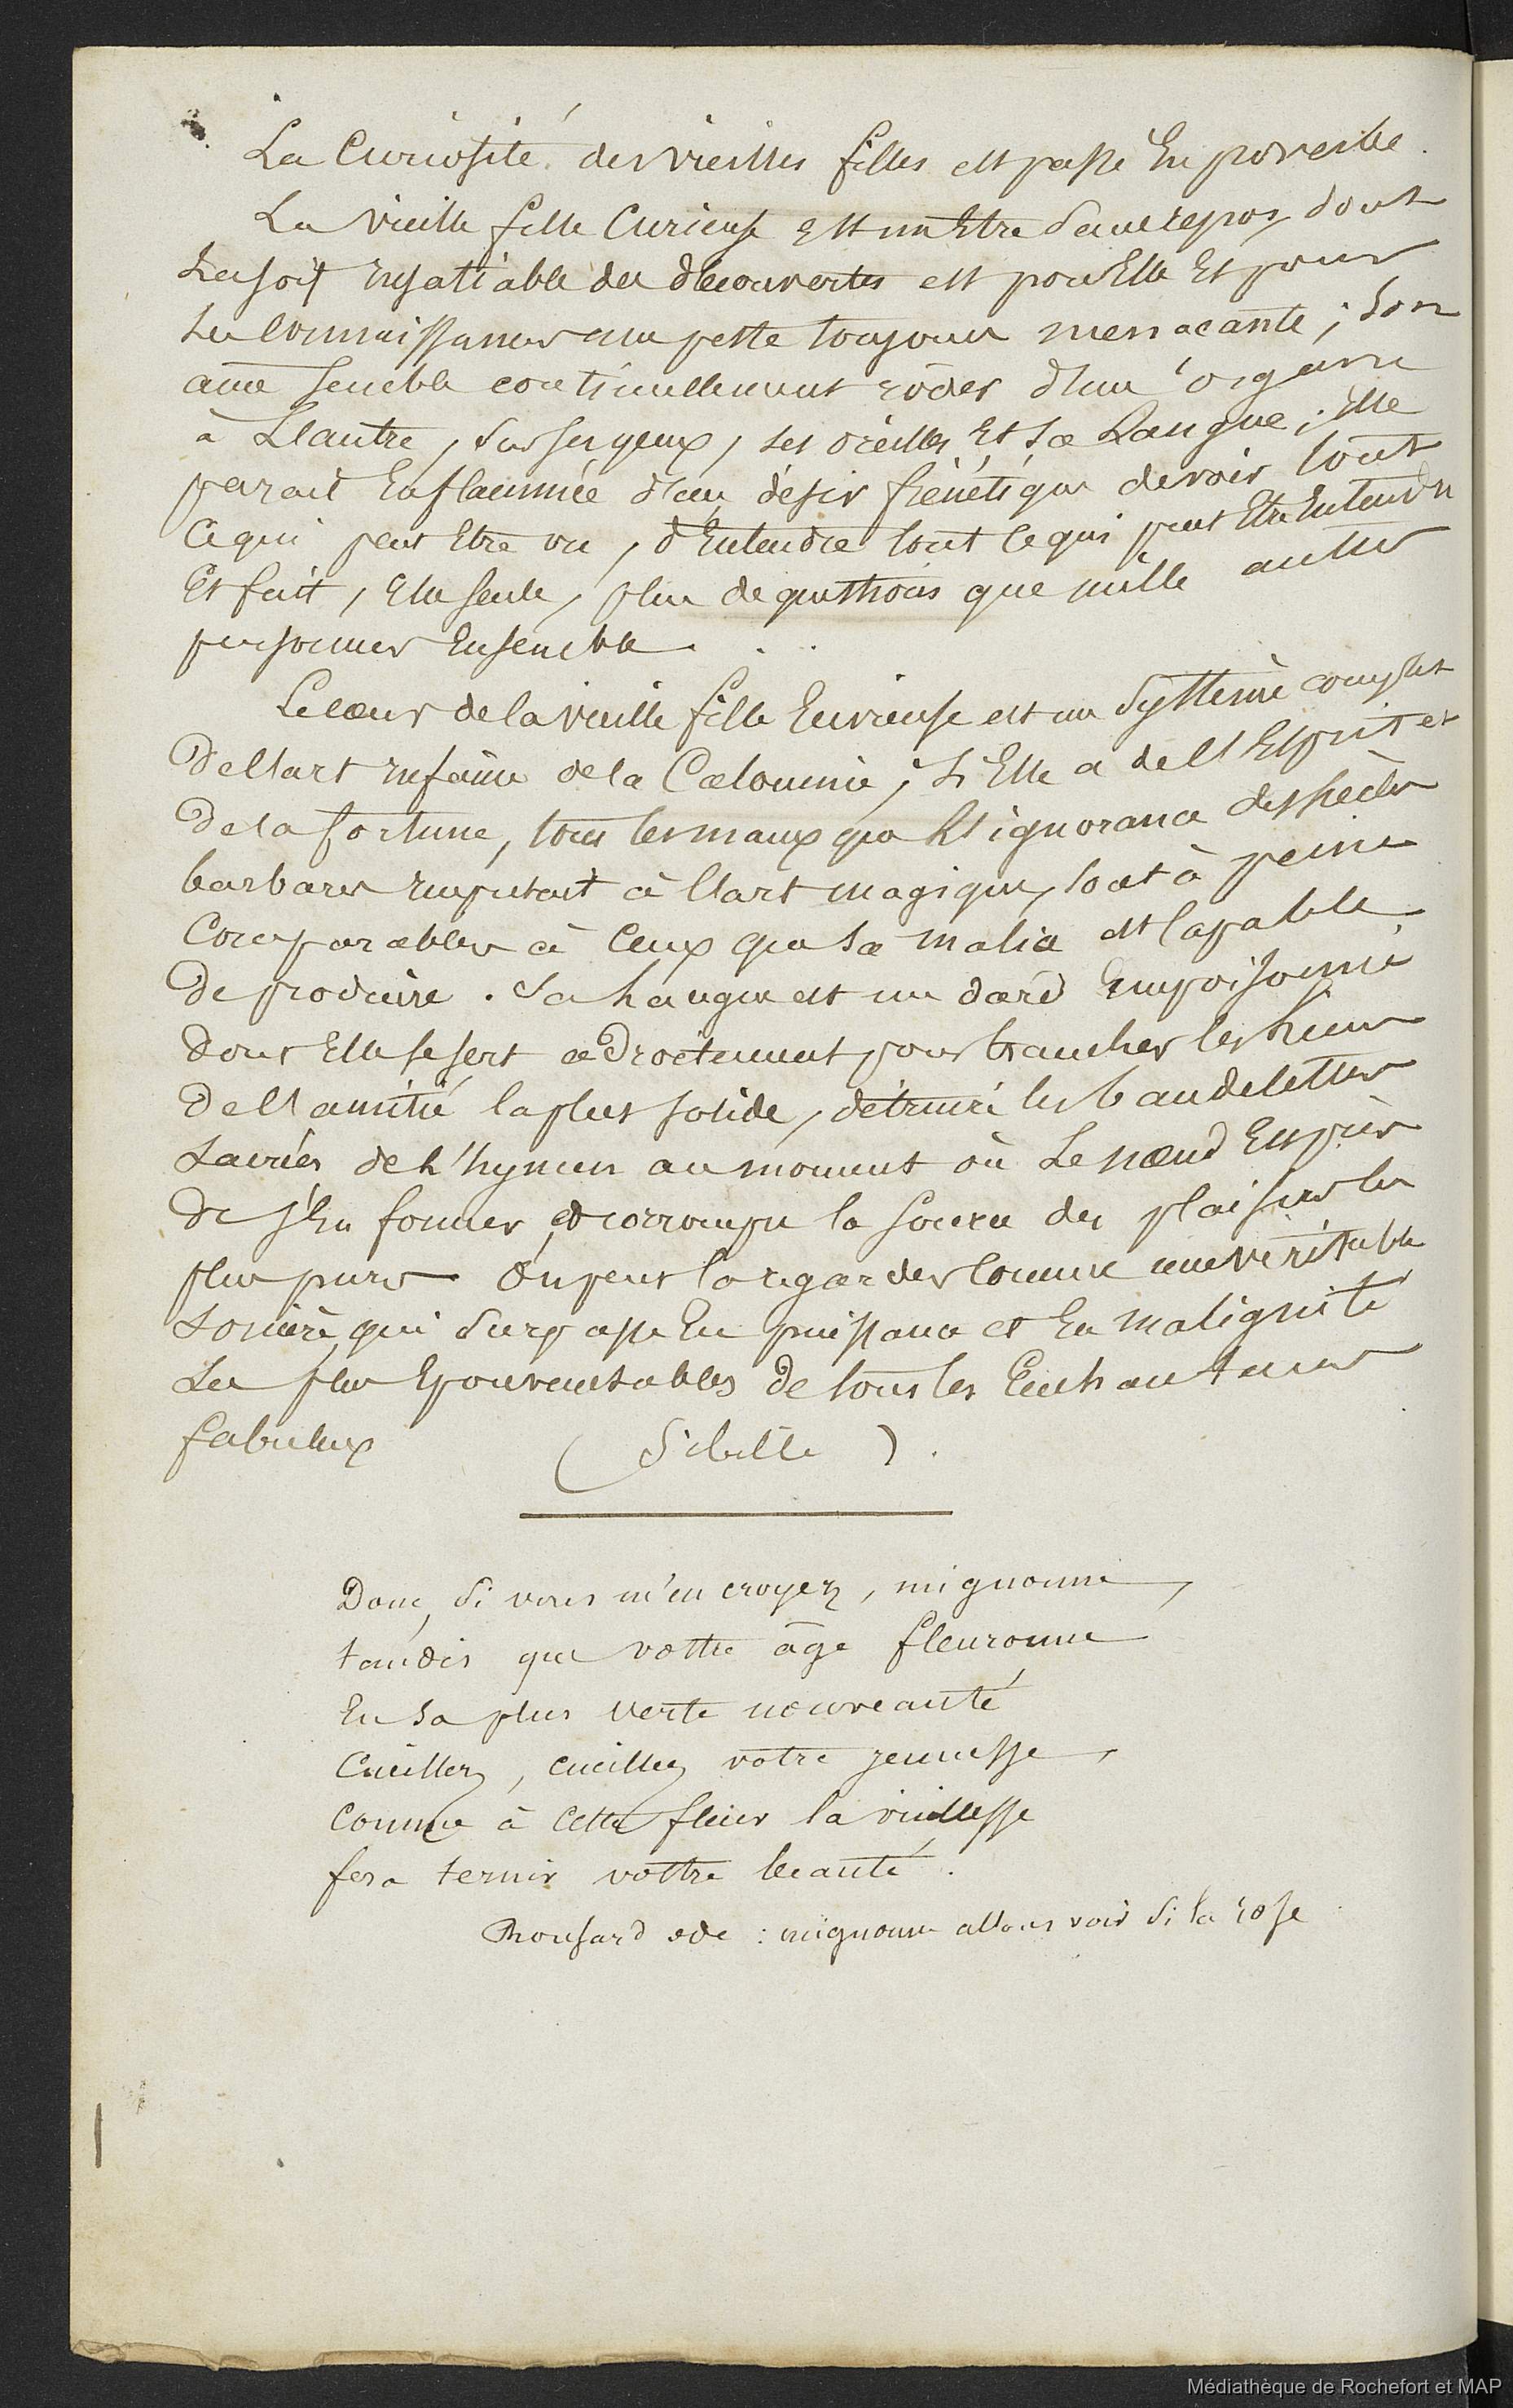 La Curiosité des vieilles filles est passé En proverbe.
La vieille fille Curieuse est un Etre sans repos dont
La soif insatiable des découvertes est pour Elle Et pour
Les connaissances une peste toujours menacante ; Son
ame semble continuellement rôder d'un organe
à L'autre, sur ses yeux, ses oreilles Et sa Langue ; Elle
parait Enflammée d'un désir frénétique de voir tout
Ce qui peut Etre vu, d'Entendre tout Ce qui peut Etre Entendu
Et fait, Elle seule, plus de questions que mille autres
personnes Ensemble . . .
Le cœur de la vieille fille Envieuse est un Système complet
De l'art infâme de la Calomnie ; Si Elle a de l'Esprit et
De la fortune, tous les maux que l'ignorance des siècles
barbares imputait à l'art magique, sont à peine
Comparables à Ceux que sa malice est Capable
De produire. Sa Langue est un dard Empoisonné
Dont Elle se sert adroitement pour trancher les liens
De l'amitié la plus solide, détruire les bandelettes
Sacrées de l'hymen au moment où Le nœud Est près
De s'En former, et corrompre la source des plaisirs les
plus purs. On peut la regarder comme une véritable
Sorcière qui Surpasse En puissance et En malignité
Les plus Epouvantables de tous les Enchanteurs
fabuleux ( Sibille ).
Donc, Si vous m'en croyez, mignonne,
tandis que vottre âge fleuronne
En Sa plus verte nouveauté
Cueillez, cueillez votre jeunesse,
Comme à Cette fleur la vieillesse
fera ternir vottre beauté.
Ronsard ode : mignonne allons voir Si la rose
Médiathèque de Rochefort et MAP